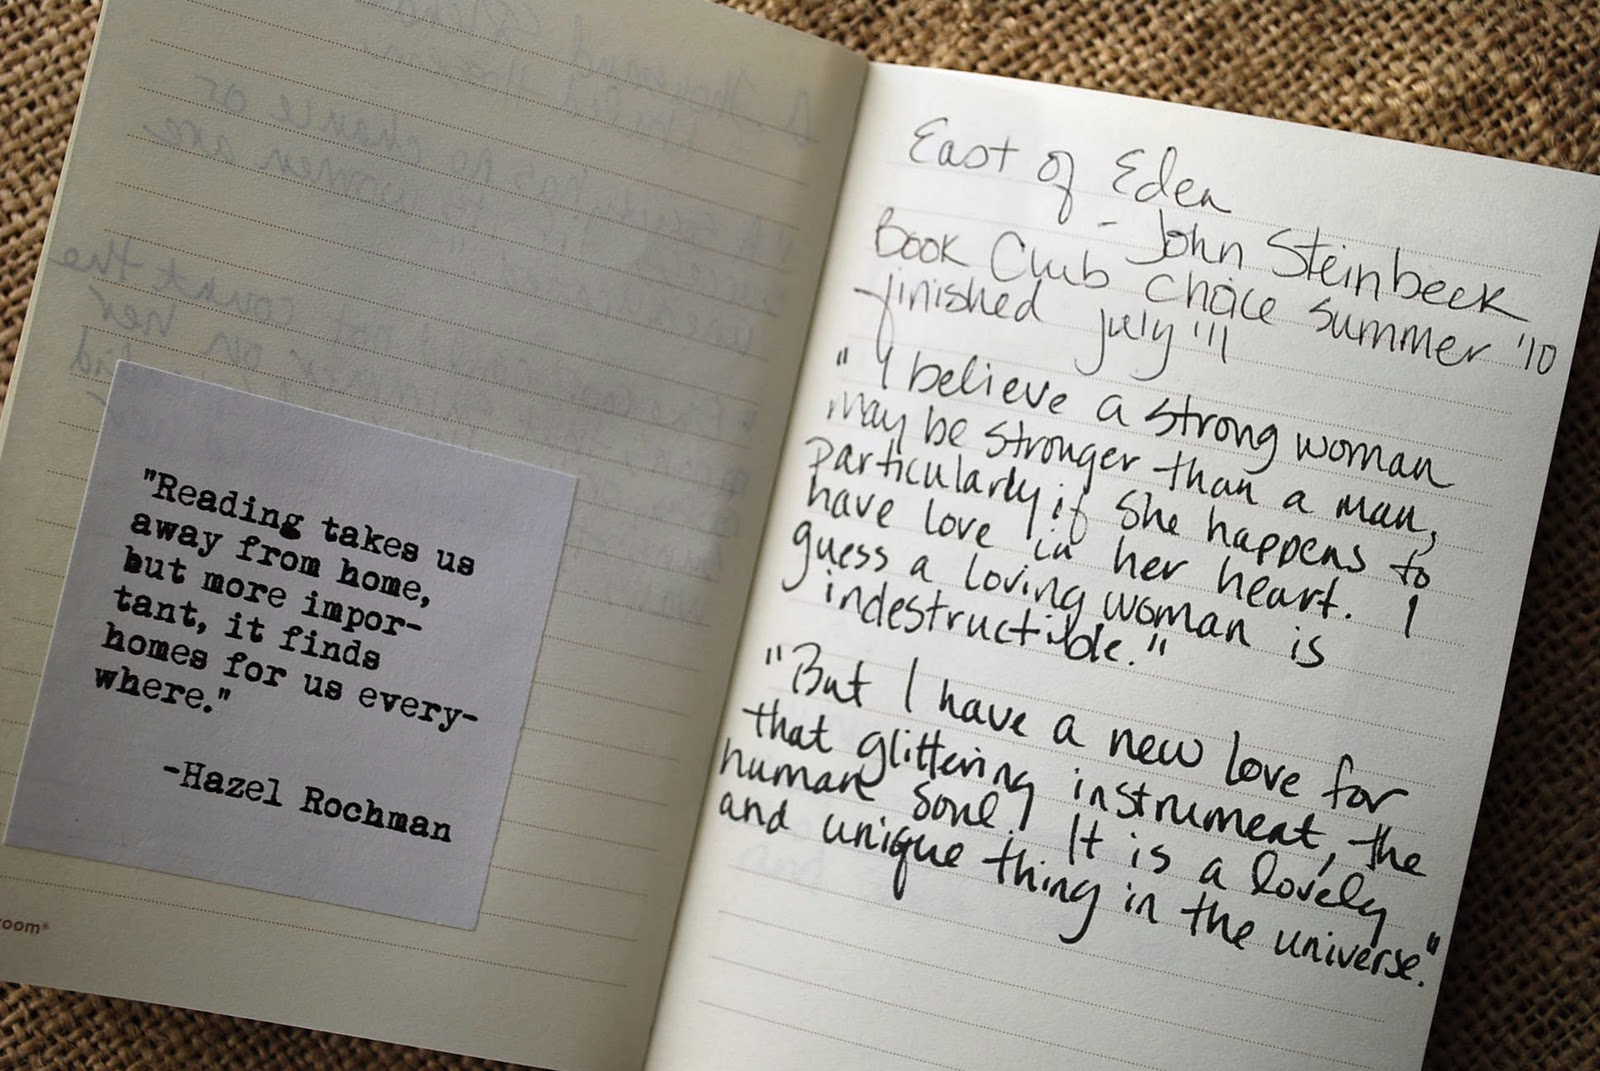 "Reading takes us
away from home,
but more impor-
tant, it finds
homes for us every-
where."
-Hazel Rochman
oom®
East of Eden
- John Steinbeck
Book Club Choice Summer '10
finished July '11
"I believe a strong woman
may be stronger than a man,
particularly if she happens to
have love in her heart. I
guess a loving woman is
indestructible."
"But I have a new love for
that glittering instrument, the
human soul. It is a lovely
and unique thing in the universe."